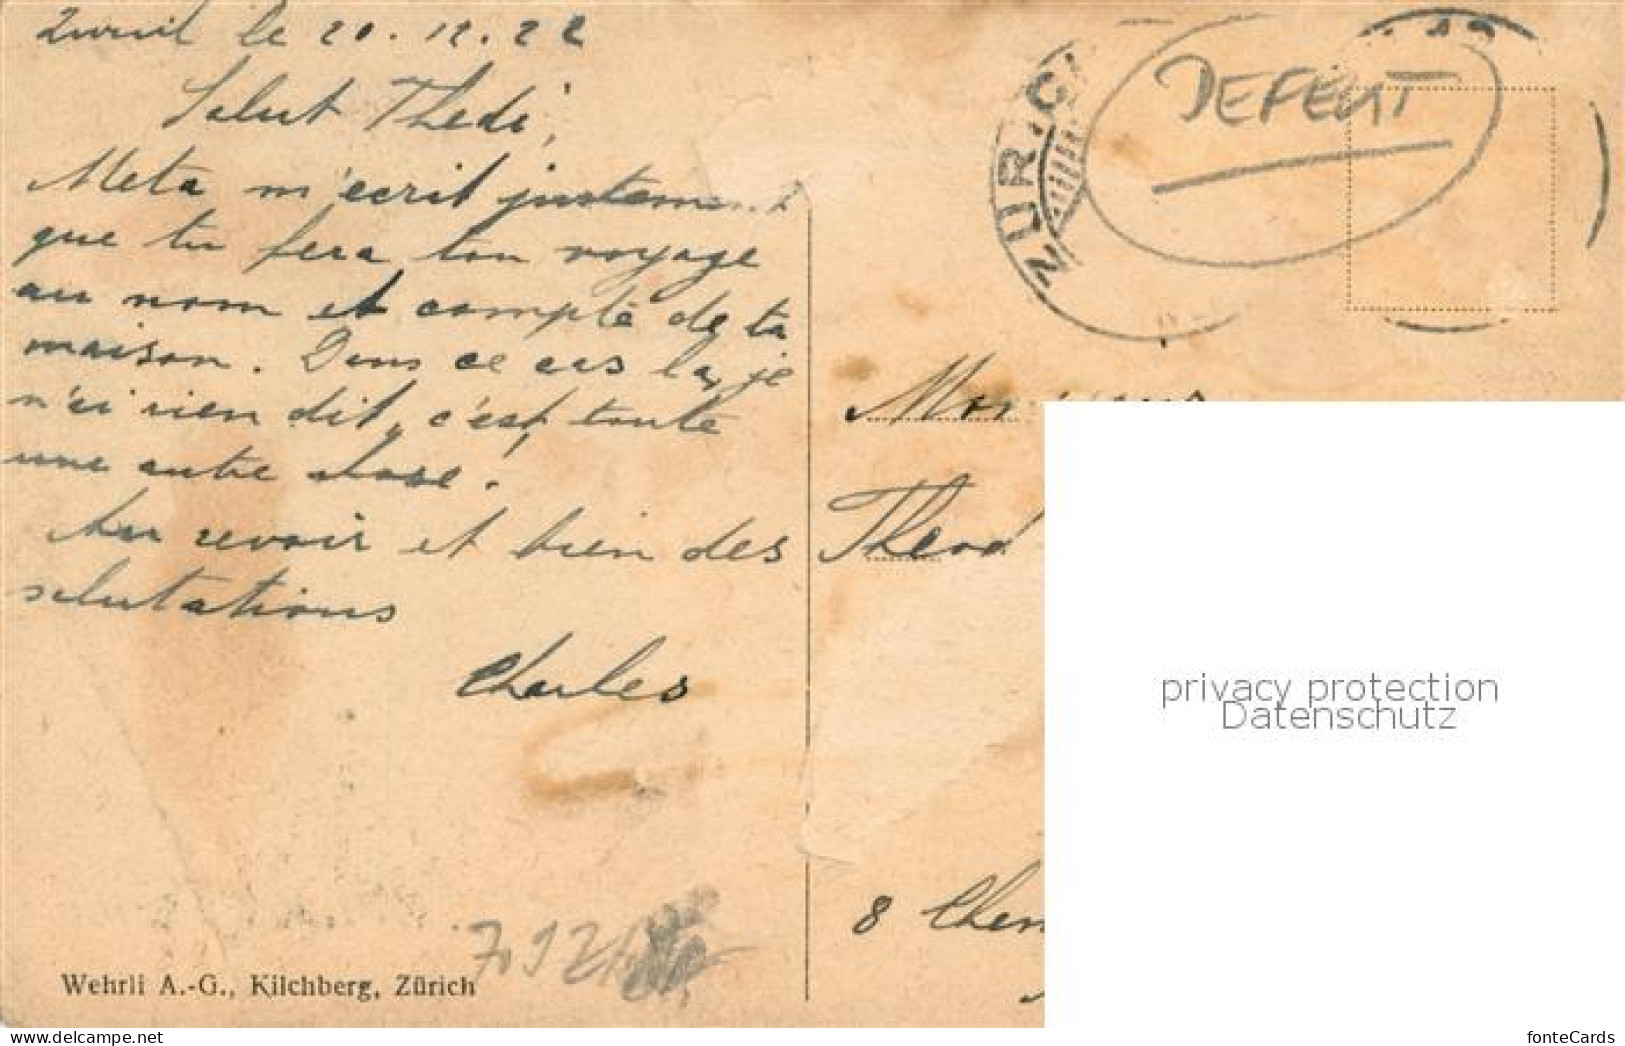 Zurich le 20.12.22
Salut Thedi,
Meta m'ecrit justement
que tu fera ton voyage
au nom et compte de ta
maison. Dans ce cas la, je
n'ai rien dit, c'est toute
une autre chose!
Au revoir et bien des
salutations
Charles
Wehrli A.-G., Kilchberg, Zürich
ZÜRICH
DEFEKT
Monsieur
Theod
8 Chem
privacy protection
Datenschutz
www.delcampe.net
fonteCards